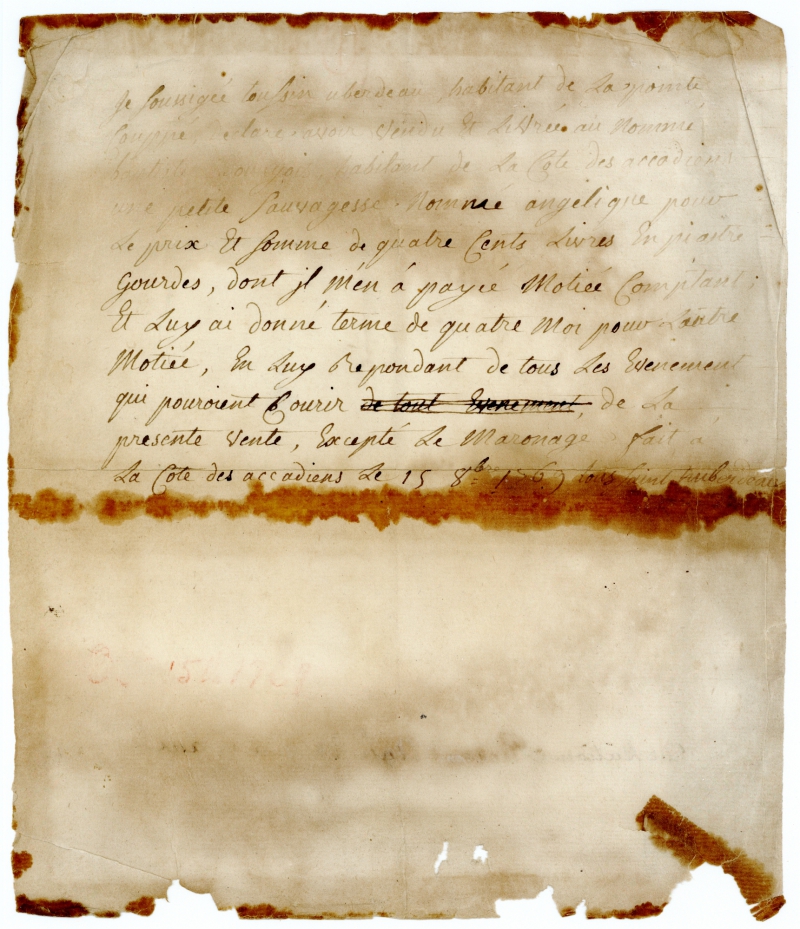 Je soussigée toussin uberdeau, habitant de La pointe
Coupée Declare avoir Vendu Et Livrée au Nommé
habitant de La Cote des accadiens
une petite Sauvagesse Nommé angelique pour
Le prix Et somme de quatre Cents Livres En piastre
Gourdes, dont jl m'en á payié Motiée Comptant;
Et Luy ai donné terme de quatre Moi pour Lautre
Motiée, En Luy Repondant de tous Les Evenement
qui pouroient Courir de tout Evenement, de La
presente Vente, Excepté Le Maronage fait a
La Cote des accadiens Le 15 8bre